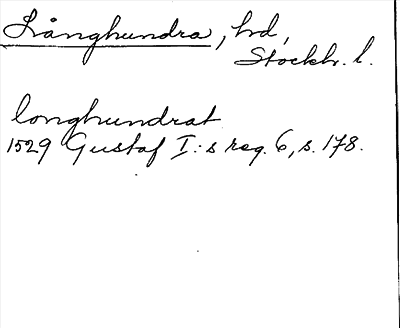 Långhundra, hd,
Stockh. l.
longhundrat
1529 Gustaf I:s reg. 6, s. 178.